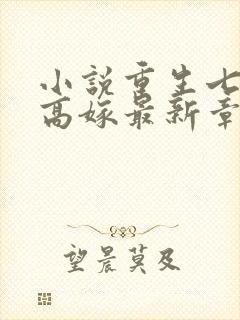 小说重生七
高嫁最新章
望晨莫及